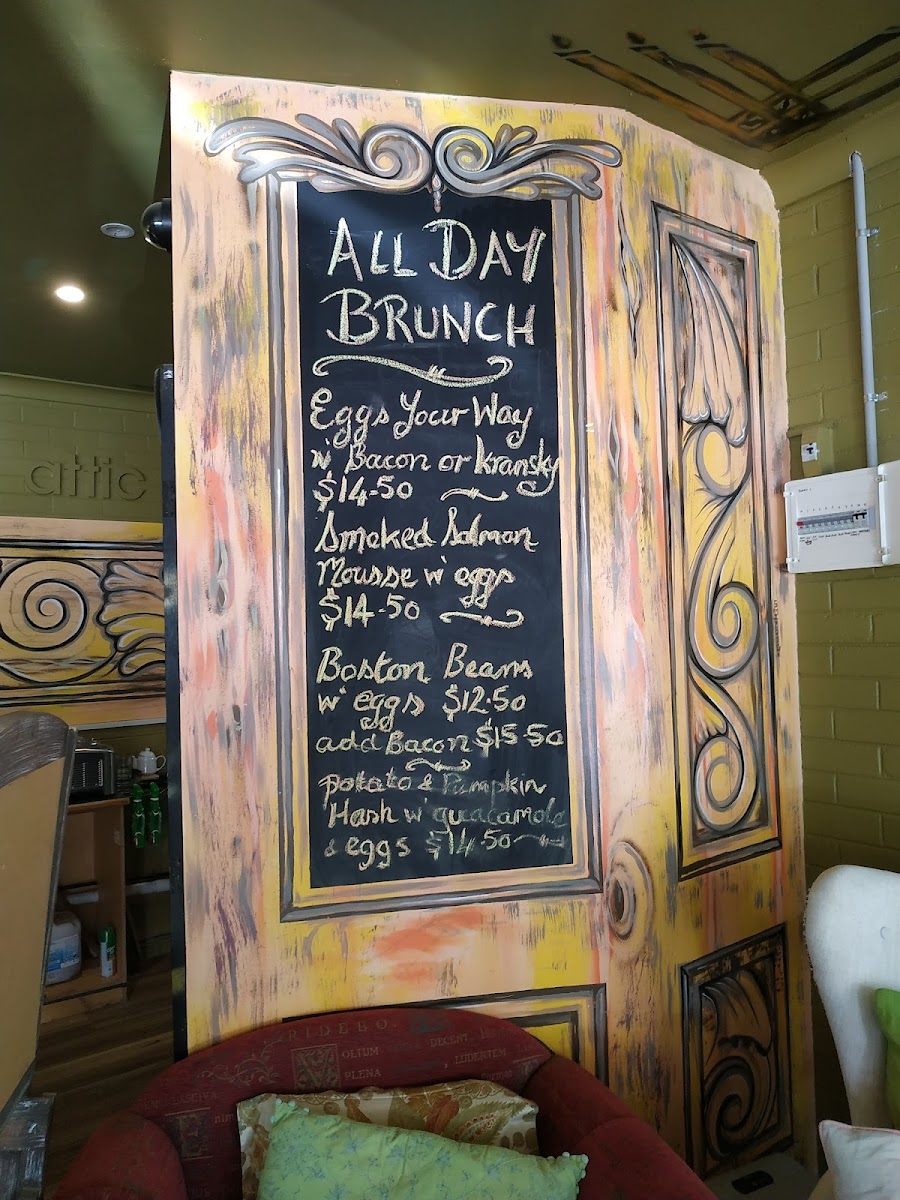 ALL DAY
BRUNCH
Eggs Your Way
w' Bacon or Kransky
$14-50
Smoked Salmon
Mousse w' eggs
$14-50
Boston Beans
w' eggs $12.50
add Bacon $15-50
potato & Pumpkin
Hash w' guacamole
& eggs $14.50
attic
RIDEBO.
VOLTUM
DECENT
PLENA
LUDENTEM